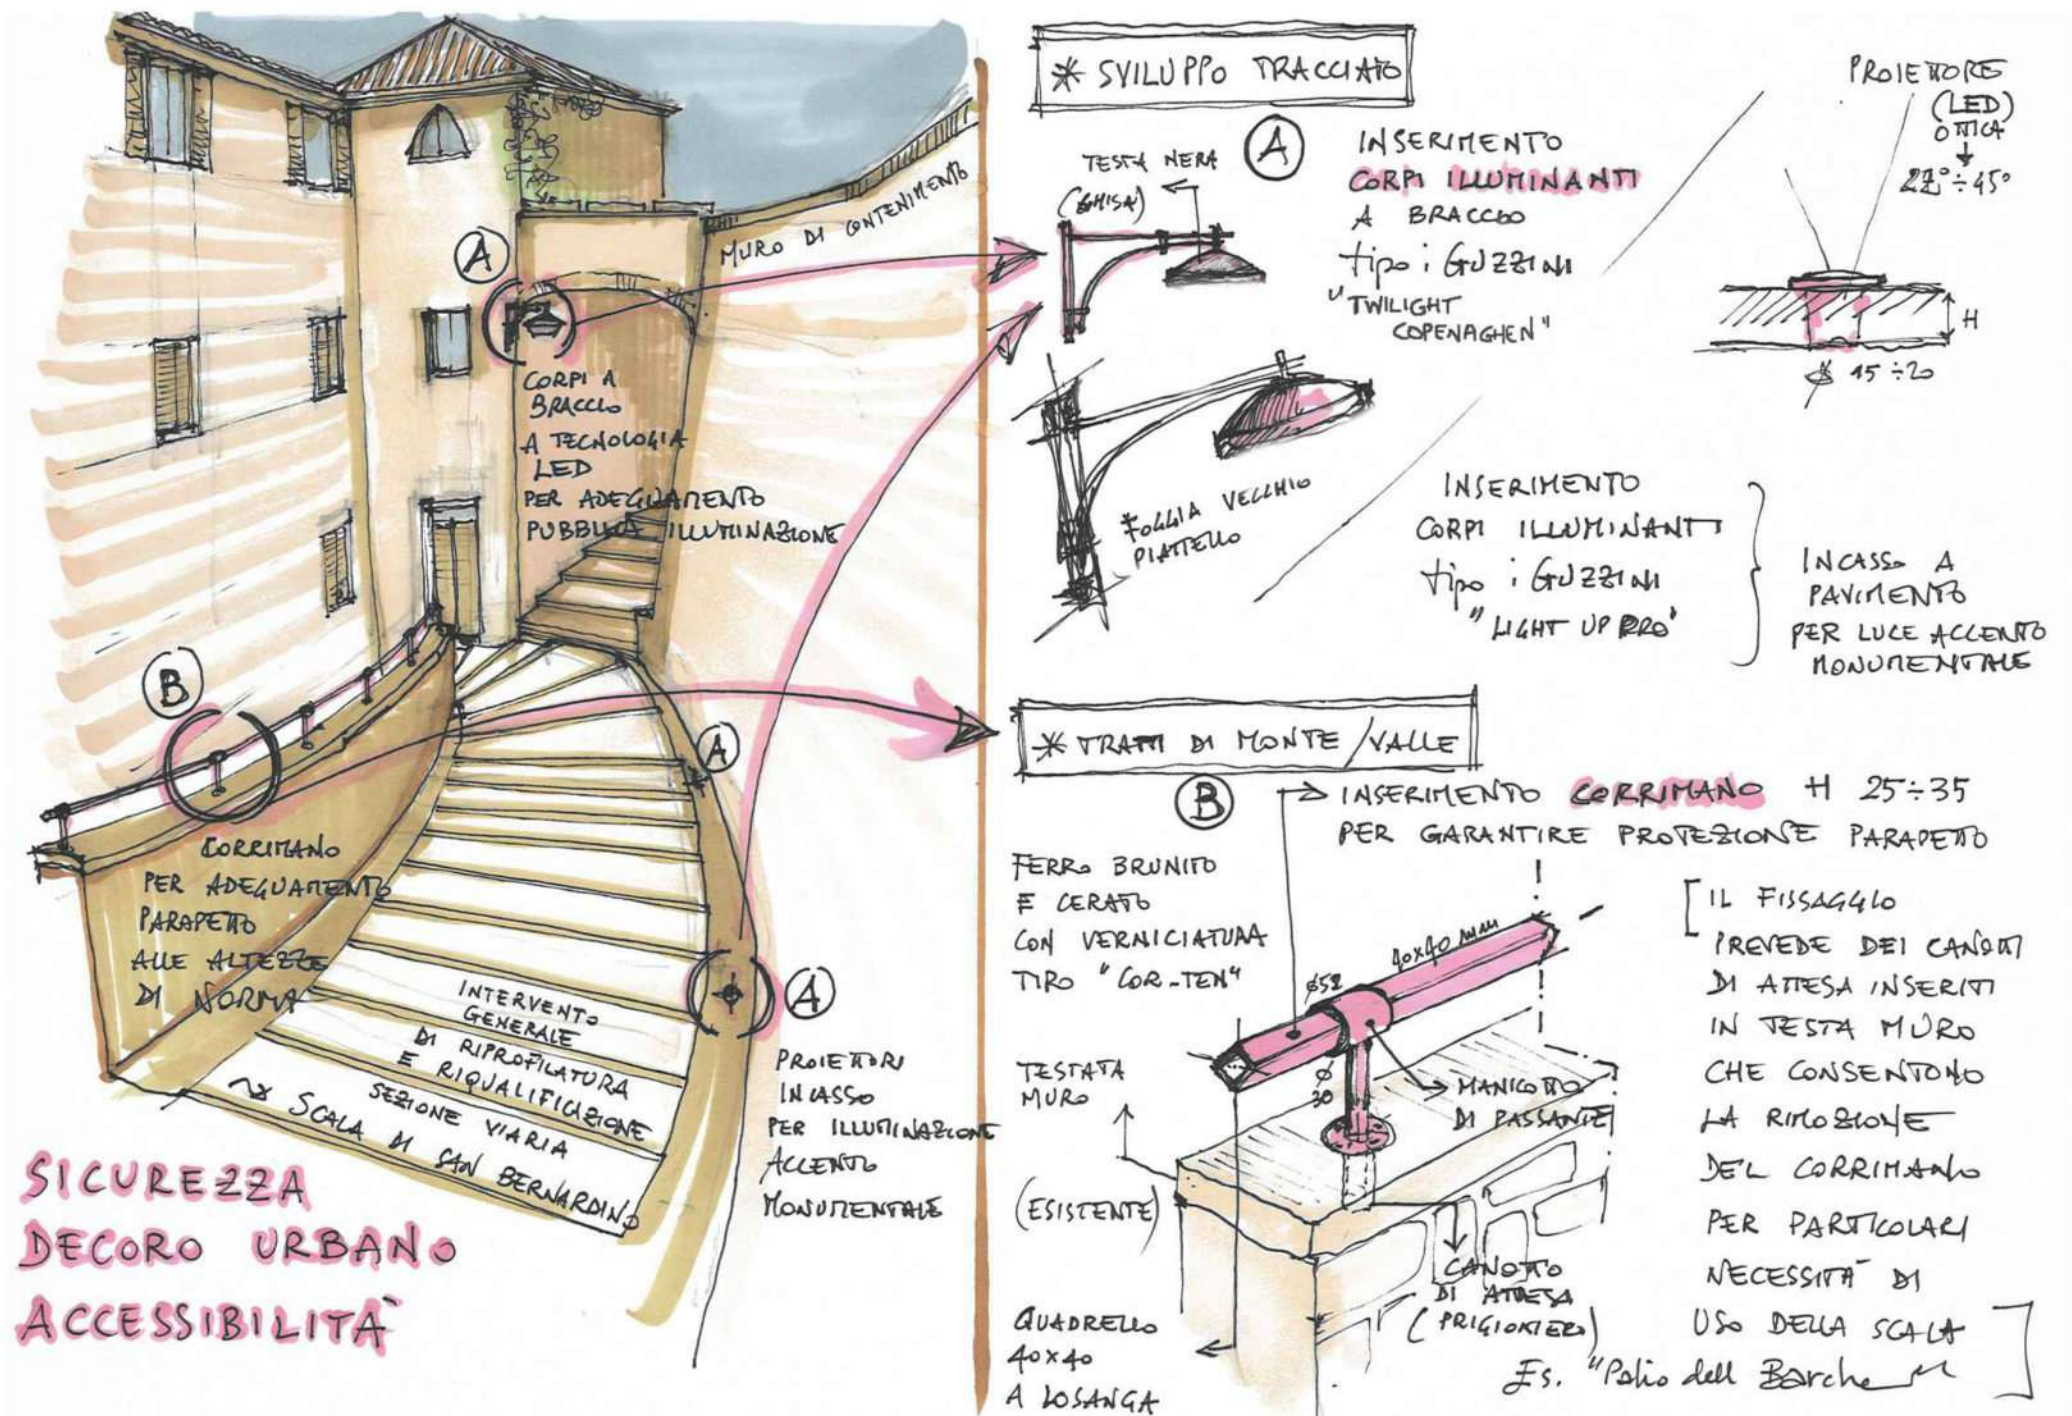 MURO DI CONTENIMENTO
A
CORPI A
BRACCIO
A TECNOLOGIA
LED
PER ADEGUAMENTO
PUBBLICA ILLUMINAZIONE
B
CORRIMANO
PER ADEGUAMENTO
PARAPETTO
ALLE ALTEZZE
DI NORMA
A
INTERVENTO
GENERALE
DI RIPROFILATURA
E RIQUALIFICAZIONE
SEZIONE VIARIA
SCALA DI SAN BERNARDINO
A
PROIETTORI
INCASSO
PER ILLUMINAZIONE
ACCENTO
MONUMENTALE
SICUREZZA
DECORO URBANO
ACCESSIBILITÀ
* SVILUPPO TRACCIATO
A
TESTA NERA
(GHISA)
INSERIMENTO
CORPI ILLUMINANTI
A BRACCIO
tipo iGUZZINI
"TWILIGHT
COPENAGHEN"
* FOGGIA VECCHIO
PIATTELLO
PROIETTORE
(LED)
OTTICA
22°÷45°
H
Ø 15÷20
INSERIMENTO
CORPI ILLUMINANTI
tipo iGUZZINI
"LIGHT UP PRO"
INCASSO A
PAVIMENTO
PER LUCE ACCENTO
MONUMENTALE
* TRATTI DI MONTE/VALLE
B
INSERIMENTO CORRIMANO H 25÷35
PER GARANTIRE PROTEZIONE PARAPETTO
FERRO BRUNITO
E CERATO
CON VERNICIATURA
TIPO "COR-TEN"
40x40 mm
Ø52
Ø
30
MANICOTTO
DI PASSANTE
TESTATA
MURO
(ESISTENTE)
CANOTTO
DI ATTESA
(PRIGIONIERO)
QUADRELLO
40x40
A LOSANGA
IL FISSAGGIO
PREVEDE DEI CANOTTI
DI ATTESA INSERITI
IN TESTA MURO
CHE CONSENTONO
LA RIMOZIONE
DEL CORRIMANO
PER PARTICOLARI
NECESSITÀ DI
USO DELLA SCALA
Es. "Palio dell Barche"